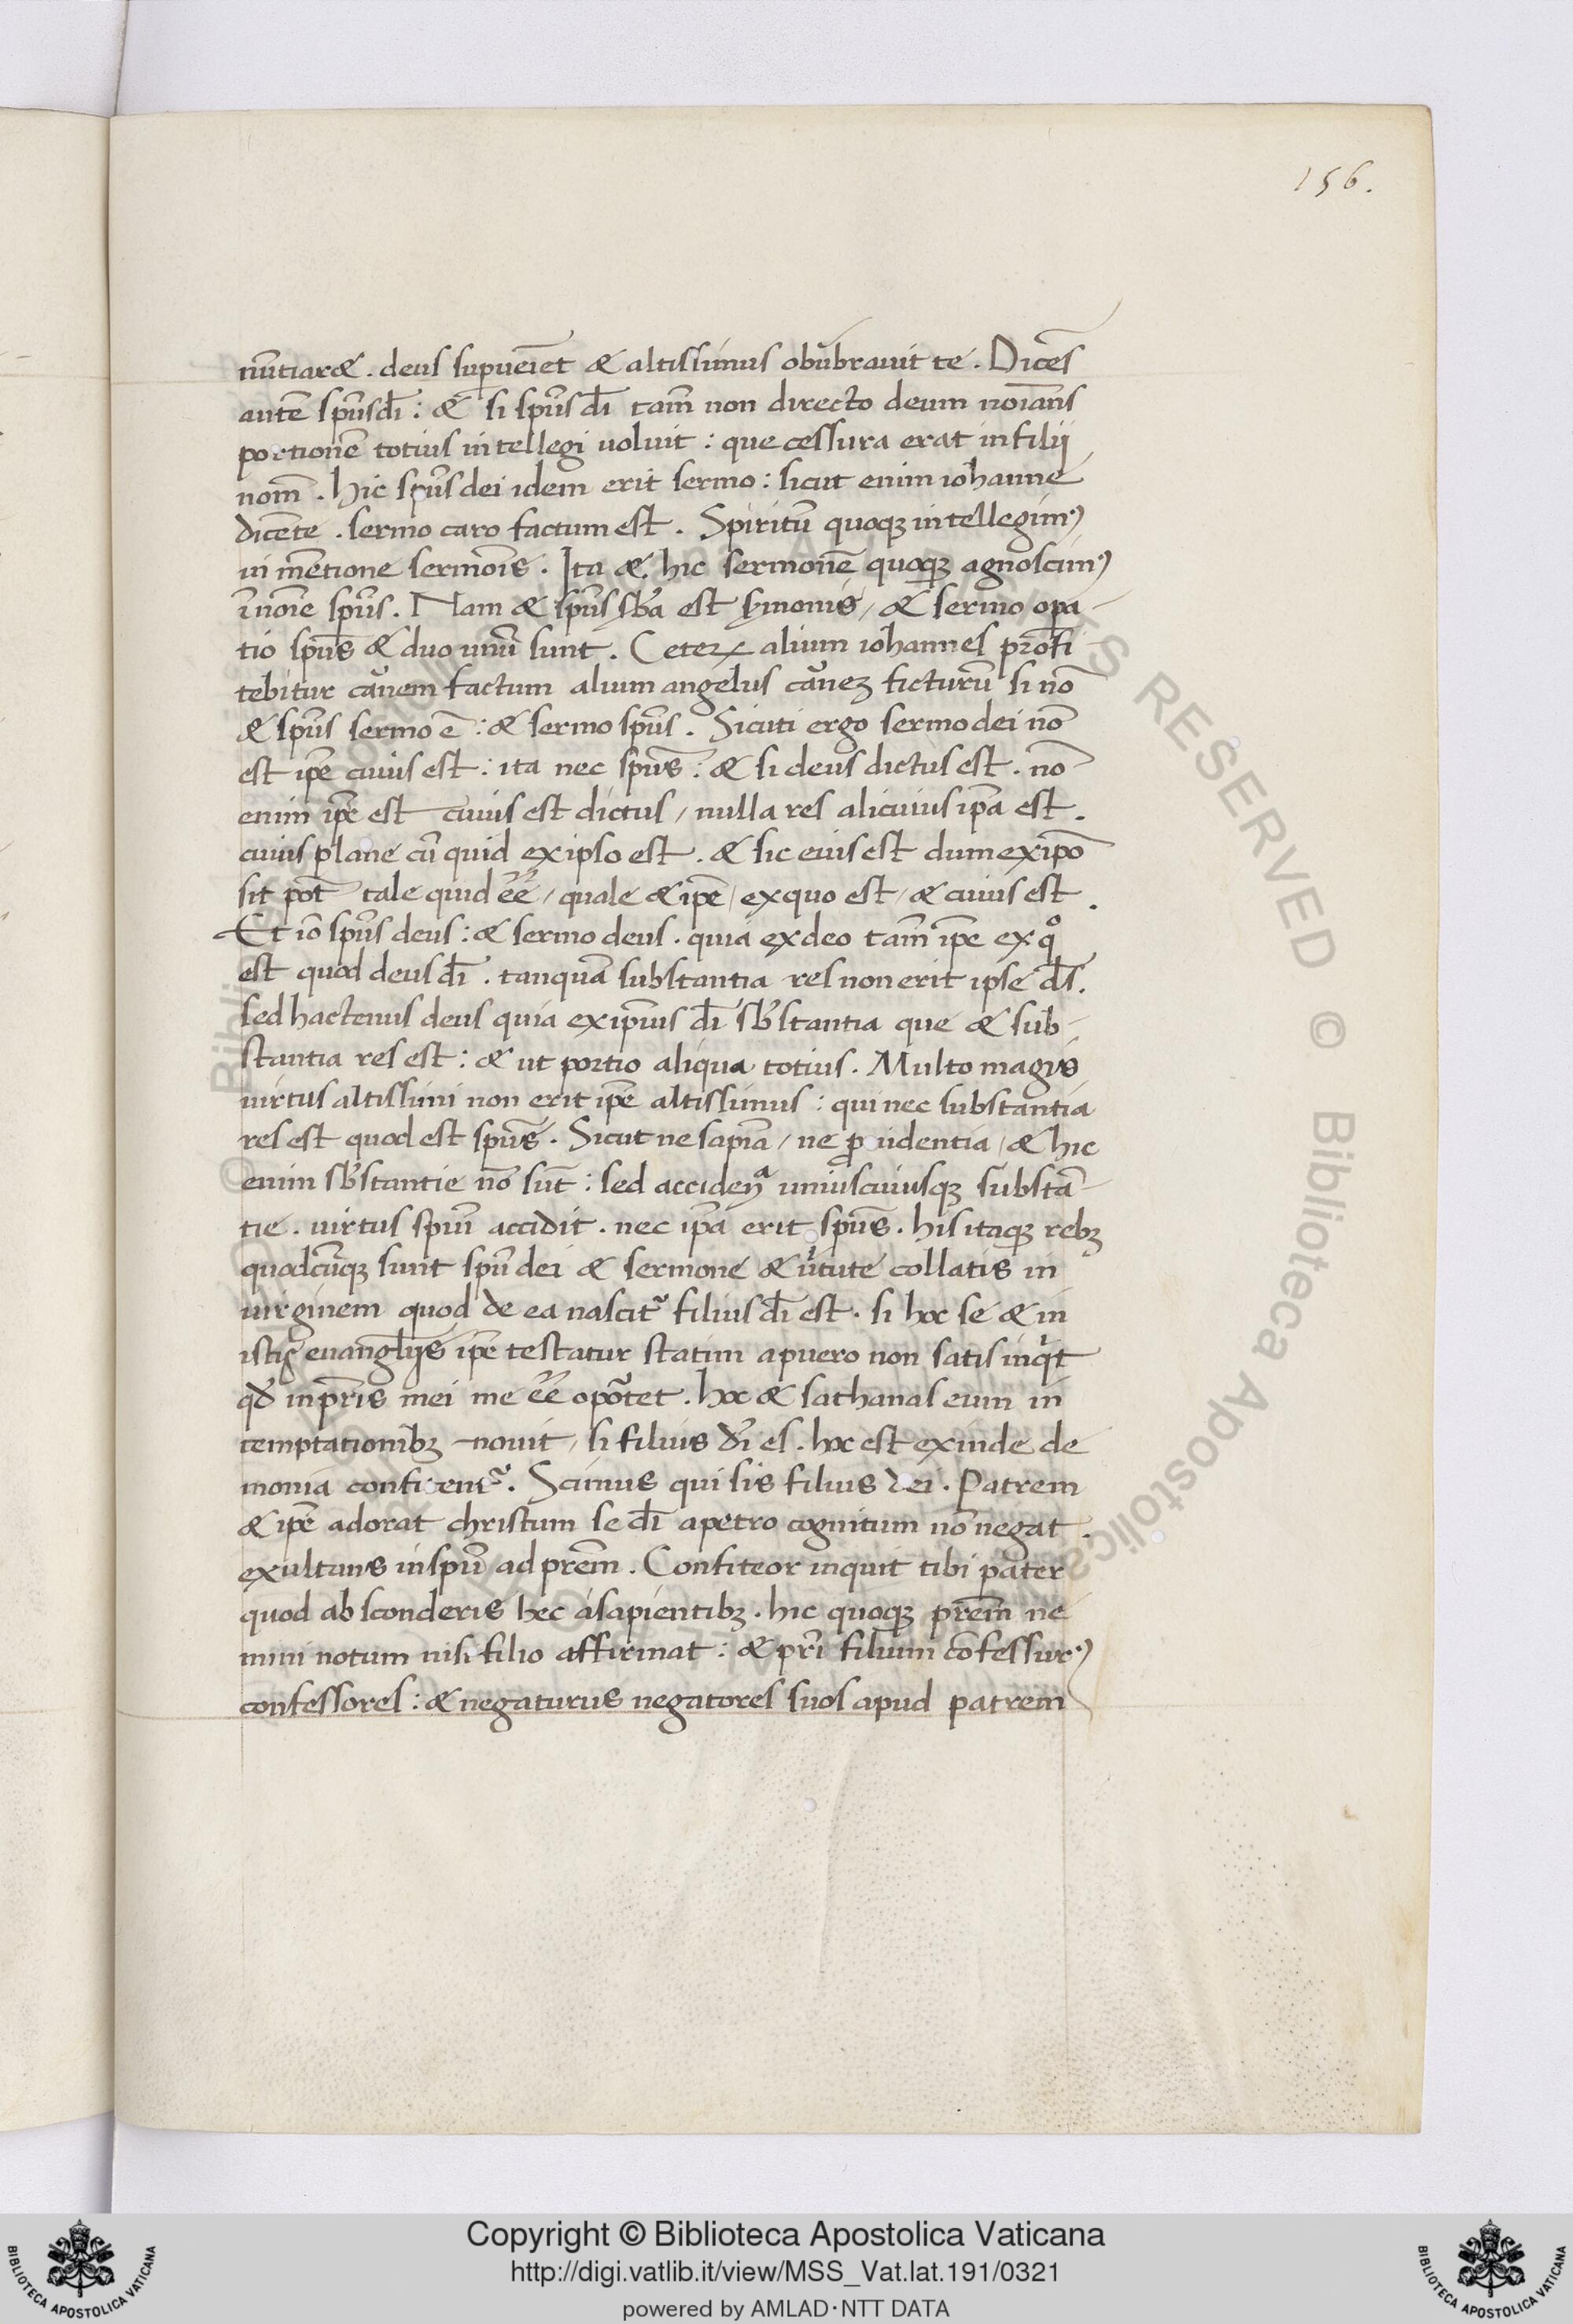 156.
nūtiar&. deus supueīet & altissimus obūbravit te. Dicēs
autē spūs dī: & si spūs dī tam̄ non directo deum noīans
portionē totius intellegi voluit: que cessura erat in filij
nom̄. hic spūs dei idem erit sermo: sicut enim iohanne
dicēte. sermo caro factum est. Spiritū quoqꝫ intellegimꝰ
in mētione sermōis. Ita & hic sermonē quoqꝫ agnoscimꝰ
ī noīe spūs. Nam & spūs sb̄a est s̄monis / & sermo opa-
tio spūs & duo unū sunt. Ceteꝝ alium iohannes profi
tebitur carnem factum alium angelus carneꝫ ficturū si nō
& spūs sermo ē: & sermo spūs. Sicuti ergo sermo dei nō
est ip̄e cuius est: ita nec spūs: & si deus dictus est. nō
enim ip̄e est cuius est dictus / nulla res alicuius ip̄a est.
cuius plane cū quid ex ipso est. & sic eius est dum ex ip̄o
sit pōt tale quid ēē / quale & ip̄e / ex quo est / & cuius est.
Et iō spūs deus: & sermo deus. quia ex deo tam̄ ip̄e ex qͦ
est quod deus dī. tanquā substantia res non erit ipse ds̄.
sed hactenus deus quia ex ip̄ius dī sb̄stantia que & sub-
stantia res est: & ut portio aliqua totius. Multo magis
virtus altissimi non erit ip̄e altissimus: qui nec substantia
res est quod est spūs. Sicut ne sapīa / ne ꝓvidentia / & hic
enim sb̄stantie nō sūt: sed accidenᵃ uniuscuiusqꝫ substā-
tie. virtus spiū accidit. nec ip̄a erit spūs. his itaqꝫ rebꝫ
quodcūqꝫ sunt spū dei & sermone & v̄tute collatis in
virginem quod de ea nascit᷑ filius dī est. si hoc se & in
istis evangl̄ijs ip̄e testatur statim a puero non satis inqͥt
qd̄ in pr̄is mei me ēē oportet. hoc & sathanas eum in
temptationibꝫ novit / si filius dī es. hoc est exinde de
monia confitent᷑. Scimus qui sis filius dei. Patrem
& ip̄e adorat christum se dī a petro cognitum nō negat.
exultans in spū ad prēm. Confiteor inquit tibi pater
quod absconderis hec a sapientibꝫ. hic quoqꝫ prēm ne
mini notum nisi filio affirmat: & pr̄i filium cōfessurꝰ
confessores: & negaturus negatores suos apud patrem
Copyright © Biblioteca Apostolica Vaticana
http://digi.vatlib.it/view/MSS_Vat.lat.191/0321
powered by AMLAD·NTT DATA